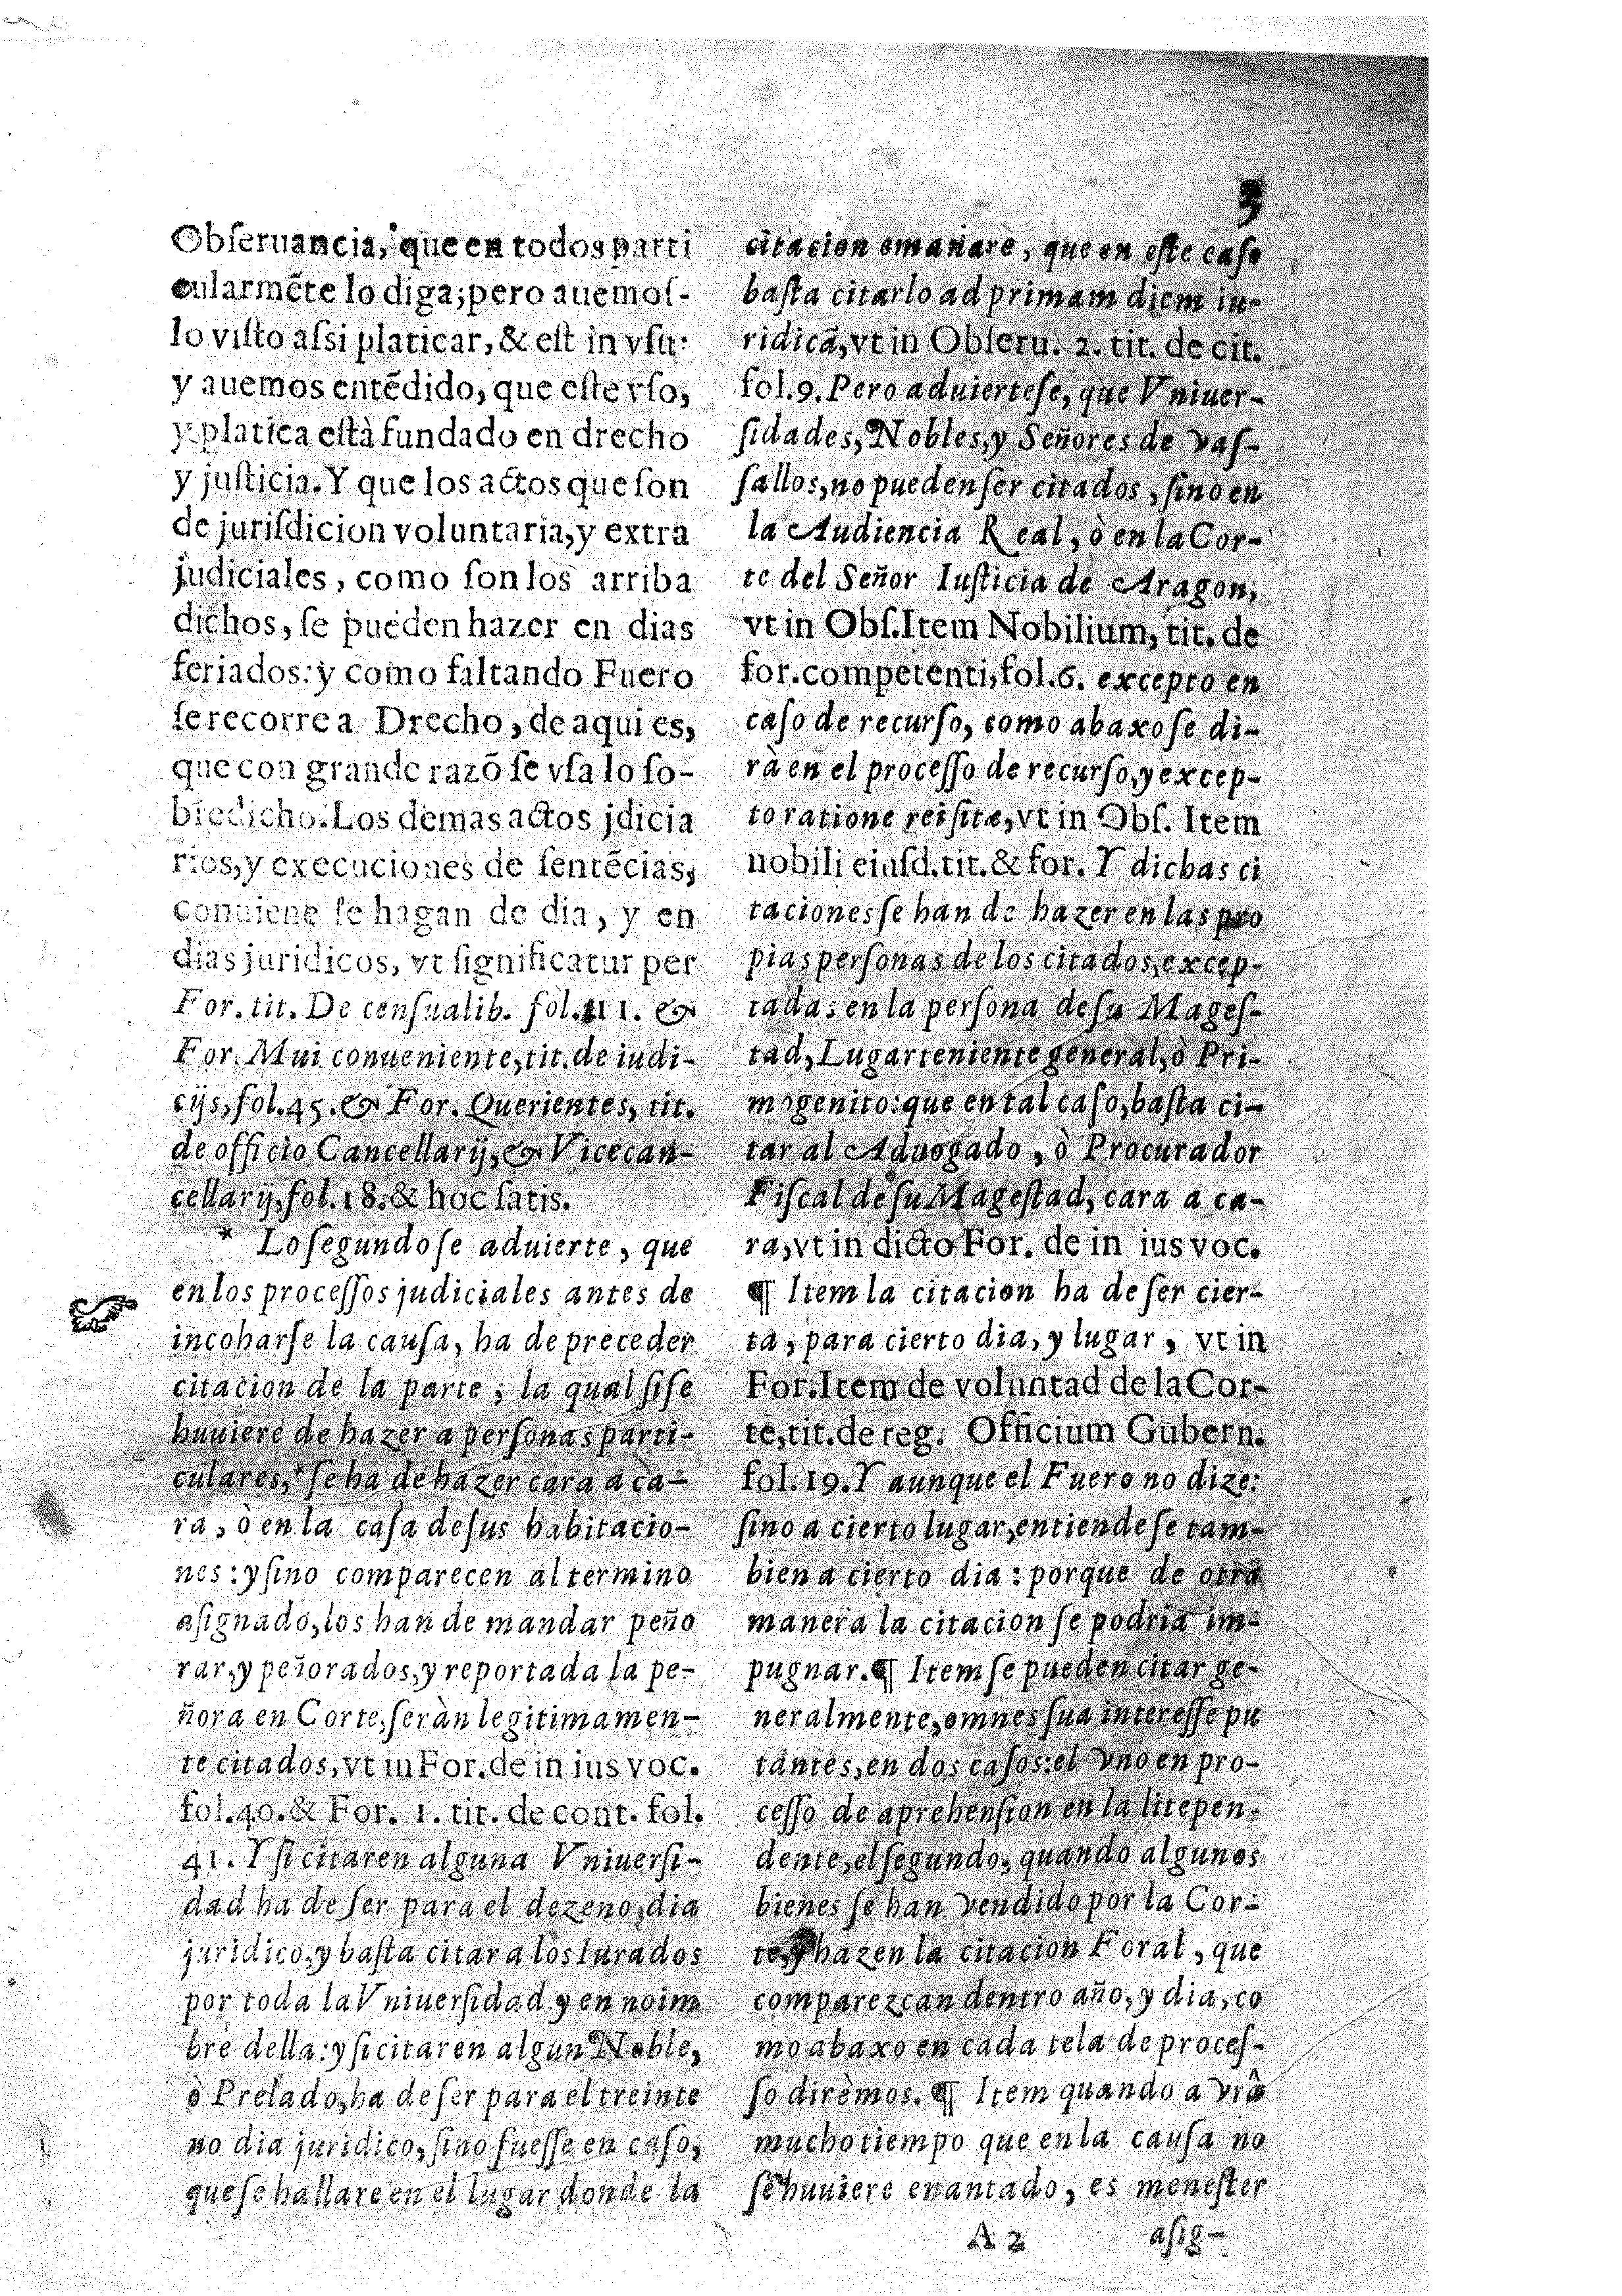 3
Obſeruancia, que en todos parti
cularmẽte lo diga; pero auemoſ-
lo viſto aſsi platicar, & eſt in vſu:
y auemos entẽdido, que eſte vſo,
y platica eſtà fundado en drecho
y juſticia. Y que los actos que ſon
de juriſdicion voluntaria, y extra
judiciales, como ſon los arriba
dichos, ſe pueden hazer en dias
feriados: y como faltando Fuero
ſe recorre a Drecho, de aqui es,
que con grande razõ ſe vſa lo ſo-
bredicho. Los demas actos jdicia
rios, y execuciones de ſentẽcias,
conuiene ſe hagan de dia, y en
dias juridicos, vt ſignificatur per
For. tit. De cenſualib. fol. 111. &
For. Mui conueniente, tit. de iudi-
cijs, fol. 45. & For. Querientes, tit.
de officio Cancellarij, & Vicecan-
cellarij, fol. 18. & hoc ſatis.
* Lo ſegundo ſe aduierte, que
en los proceſſos judiciales antes de
incoharſe la cauſa, ha de preceder
citacion de la parte; la qual ſi ſe
huuiere de hazer a perſonas parti-
culares, ſe ha de hazer cara a ca-
ra, ò en la caſa de ſus habitacio-
nes: y ſino comparecen al termino
aſignado, los han de mandar peño
rar, y peñorados, y reportada la pe-
ñora en Corte, ſeràn legitimamen-
te citados, vt in For. de in ius voc.
fol. 40. & For. 1. tit. de cont. fol.
41. Y ſi citaren alguna Vniuerſi-
dad ha de ſer para el dezeno dia
juridico, y baſta citar a los Iurados
por toda la Vniuerſidad y en noim
bre della: y ſi citaren algun Noble,
ò Prelado, ha de ſer para el treinte
no dia juridico, ſino fueſſe en caſo,
que ſe hallare en el lugar donde la
citacion emanare, que en eſte caſo
baſta citarlo ad primam diem iu-
ridicã, vt in Obſeru. 2. tit. de cit.
fol. 9. Pero aduierteſe, que Vniuer-
ſidades, Nobles, y Señores de vaſ-
ſallos, no pueden ſer citados, ſino en
la Audiencia Real, ò en la Cor-
te del Señor Iuſticia de Aragon,
vt in Obſ. Item Nobilium, tit. de
for. competenti, fol. 6. excepto en
caſo de recurſo, como abaxo ſe di-
rà en el proceſſo de recurſo, y excep-
to ratione rei ſitæ, vt in Obſ. Item
nobili eiuſd. tit. & for. Y dichas ci
taciones ſe han de hazer en las pro
pias perſonas de los citados, excep-
tada: en la perſona de ſu Mageſ-
tad, Lugarteniente general, ò Pri-
mogenito: que en tal caſo, baſta ci-
tar al Aduogado, ò Procurador
Fiſcal de ſu Mageſtad, cara a ca-
ra, vt in dicto For. de in ius voc.
¶ Item la citacion ha de ſer cier-
ta, para cierto dia, y lugar, vt in
For. Item de voluntad de la Cor-
te, tit. de reg. Officium Gubern.
fol. 19. Y aunque el Fuero no dize:
ſino a cierto lugar, entiendeſe tam-
bien a cierto dia: porque de otra
manera la citacion ſe podria im-
pugnar. ¶ Item ſe pueden citar ge-
neralmente, omnes ſua intereſſe pu
tantes, en dos caſos: el vno en pro-
ceſſo de aprehenſion en la litepen-
dente, el ſegundo, quando algunos
bienes ſe han vendido por la Cor-
te, y hazen la citacion Foral, que
comparezcan dentro año, y dia, co
mo abaxo en cada tela de proceſ-
ſo dirèmos. ¶ Item quando a vrâ
mucho tiempo que en la cauſa no
ſe huuiere enantado, es meneſter
A 2 aſig-